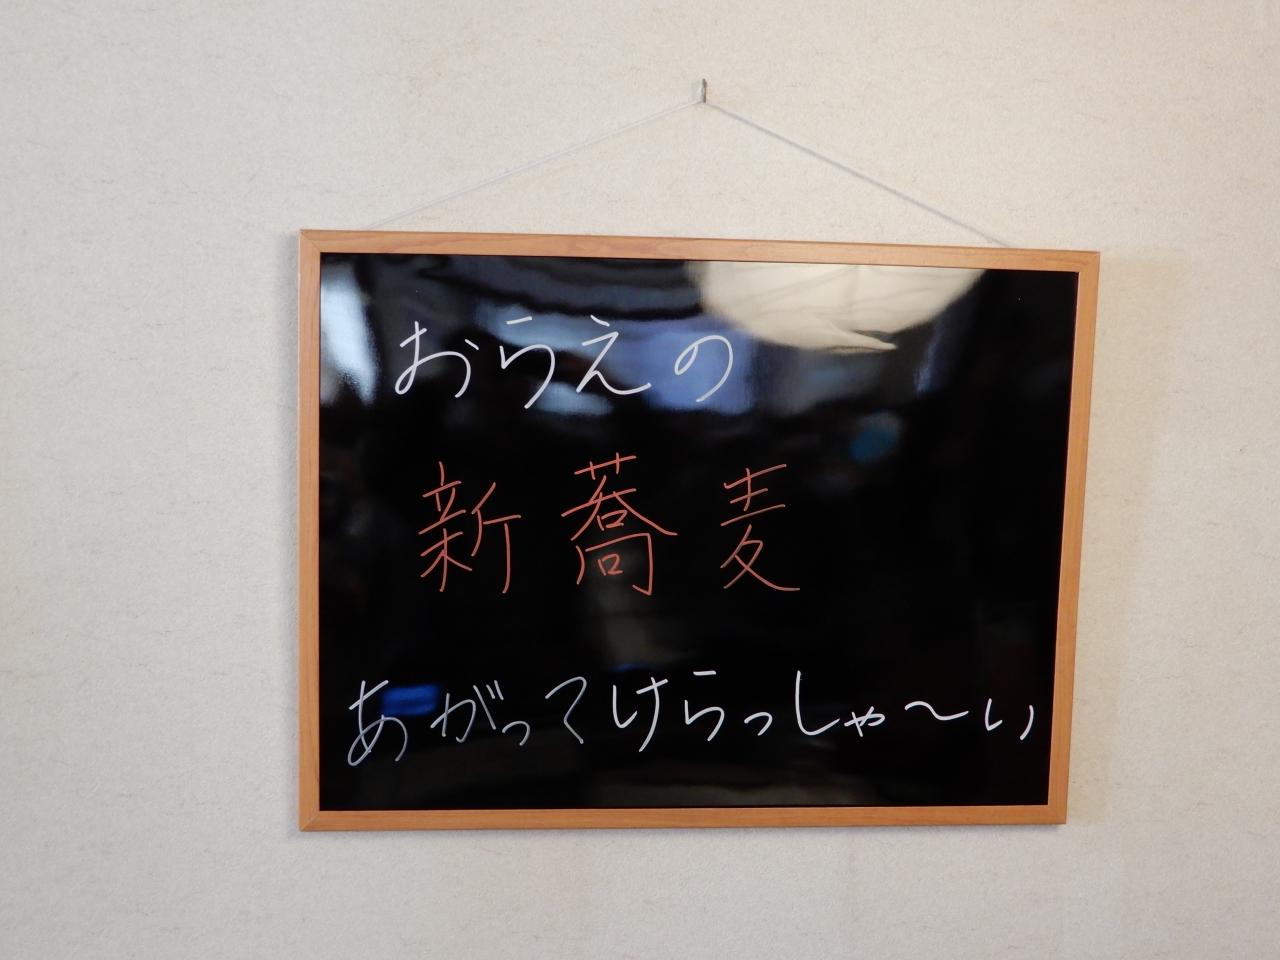 おらえの
新蕎麦
あがってけらっしゃ～い